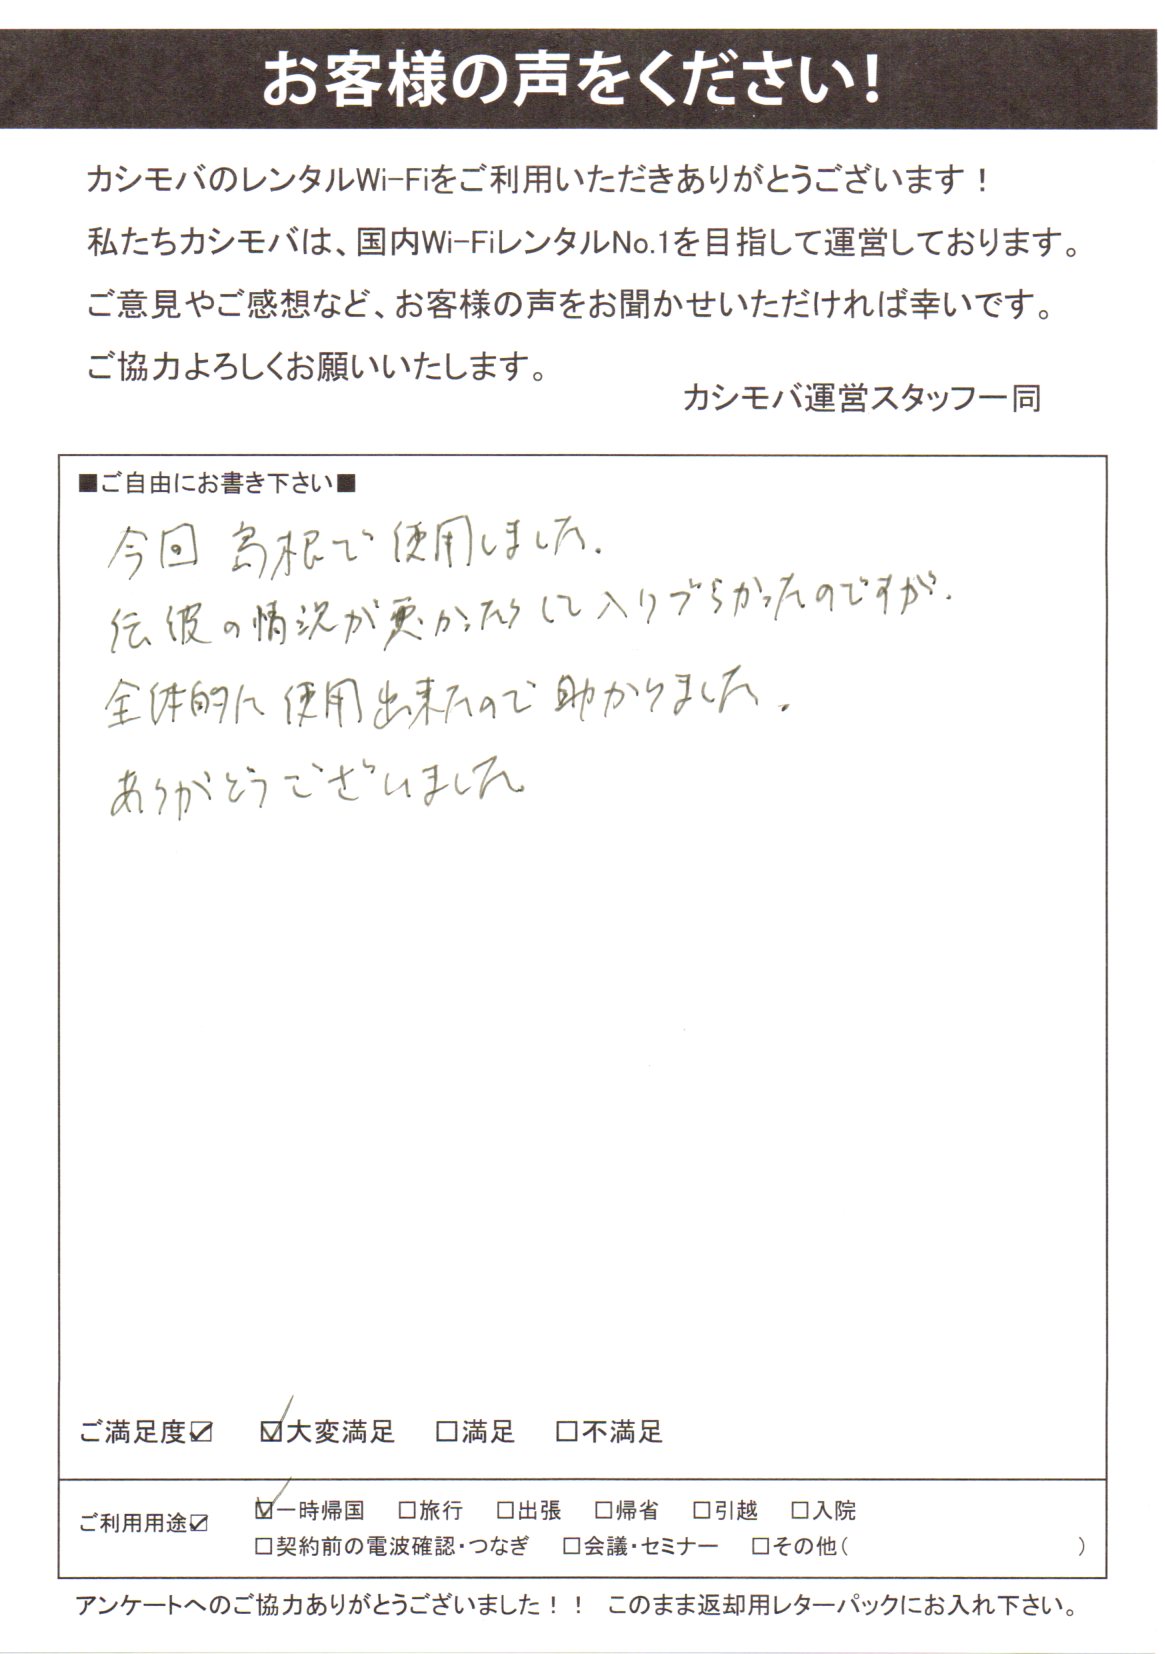 お客様の声をください!
カシモバのレンタルWi-Fiをご利用いただきありがとうございます！
私たちカシモバは、国内Wi-FiレンタルNo.1を目指して運営しております。
ご意見やご感想など、お客様の声をお聞かせいただければ幸いです。
ご協力よろしくお願いいたします。
カシモバ運営スタッフ一同
■ご自由にお書き下さい■
今回 島根で使用しました.
伝波の情況が悪かったりして入りづらかったのですが.
全体的に使用出来たので助かりました.
ありがとうございました
ご満足度☑ ☑大変満足 □満足 □不満足
ご利用用途☑ ☑一時帰国 □旅行 □出張 □帰省 □引越 □入院
□契約前の電波確認・つなぎ □会議・セミナー □その他( )
アンケートへのご協力ありがとうございました！！ このまま返却用レターパックにお入れ下さい。